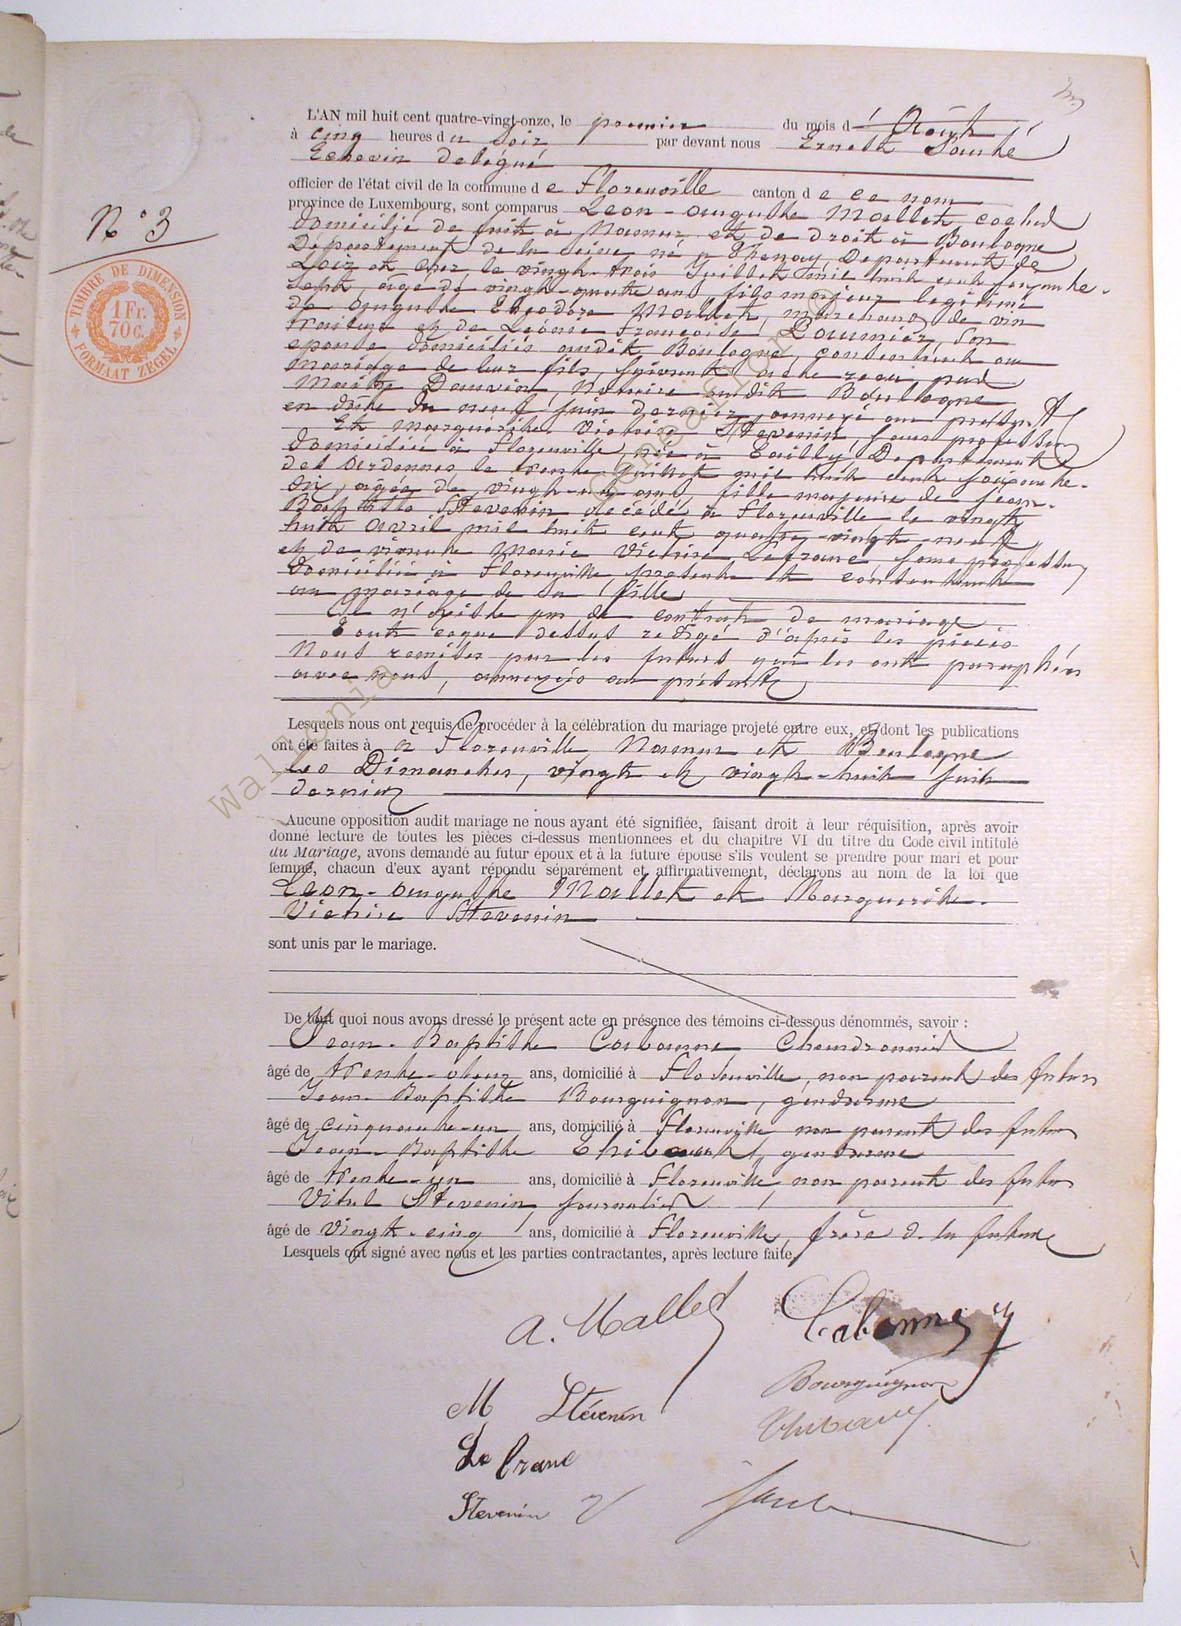 L'AN mil huit cent quatre-vingt-onze, le premier du mois d' Août
à cinq heures du soir par devant nous Ernest Sauté
Echevin délégué
officier de l'état civil de la commune de Florenville canton de ce nom
province de Luxembourg, sont comparus Léon-Auguste Mallet, cocher
domicilié de fait à Namur et de droit à Boulogne
Département de la Seine né à Thenay, Département de
Loir et Cher, le vingt-trois Juillet mil huit cent soixante-
sept, âgé de vingt-quatre ans, fils majeur légitime
de Auguste Théodore Mallet, marchand de vin
traiteur et de Françoise son
épouse domiciliés audit Boulogne, consentant au
mariage de leur fils, suivant acte reçu par
Maître Dauvin, Notaire audit Boulogne
en date du neuf Juin dernier annexé au présent
Et Marguerite Victoire Stevenin, sans profession
domiciliée à Florenville, née à Tailly Département
des Ardennes le trente Juillet mil huit cent soixante-
dix, âgée de vingt-un ans, fille majeure de Jean-
Baptiste Stevenin décédé à Florenville le vingt
huit Avril mil huit cent quatre-vingt-neuf
et de vivante Marie Victoire Lefranc, sans profession
domiciliée à Florenville, présente et consentante
au mariage de sa fille
Il n'existe pas de contrat de mariage
Tout ce que dessus rédigé d'après les pièces
Nous remises par les futurs qui les ont paraphées
avec nous, annexées au présent
N° 3
TIMBRE DE DIMENSION
1 Fr.
70 C.
FORMAAT ZEGEL
Lesquels nous ont requis de procéder à la célébration du mariage projeté entre eux, et dont les publications
ont été faites à à Florenville, Namur et Boulogne
les Dimanches, vingt et vingt-huit Juin
dernier
Aucune opposition audit mariage ne nous ayant été signifiée, faisant droit à leur réquisition, après avoir
donné lecture de toutes les pièces ci-dessus mentionnées et du chapitre VI du titre du Code civil intitulé
du Mariage, avons demandé au futur époux et à la future épouse s'ils veulent se prendre pour mari et pour
femme, chacun d'eux ayant répondu séparément et affirmativement, déclarons au nom de la loi que
Léon-Auguste Mallet et Marguerite-
Victoire Stevenin
sont unis par le mariage.
De tout quoi nous avons dressé le présent acte en présence des témoins ci-dessous dénommés, savoir :
Jean-Baptiste Cabanne, Chaudronnier
âgé de trente-deux ans, domicilié à Florenville, non parent des futurs
Jean-Baptiste Bourguignon, gendarme
âgé de cinquante-un ans, domicilié à Florenville non parent des futurs
Jean-Baptiste Thibaut, gendarme
âgé de trente-un ans, domicilié à Florenville, non parent des futurs
Vital Stevenin, journalier
âgé de vingt-cinq ans, domicilié à Florenville, frère de la future
Lesquels ont signé avec nous et les parties contractantes, après lecture faite.
A. Mallet Cabanne
Bourguignon
M Stévenin
Lefranc
Stevenin V